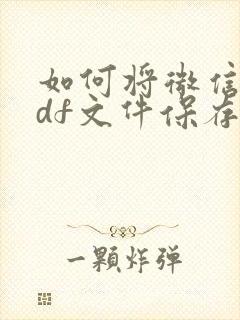 如何将微信
df文件保存
一颗炸弹